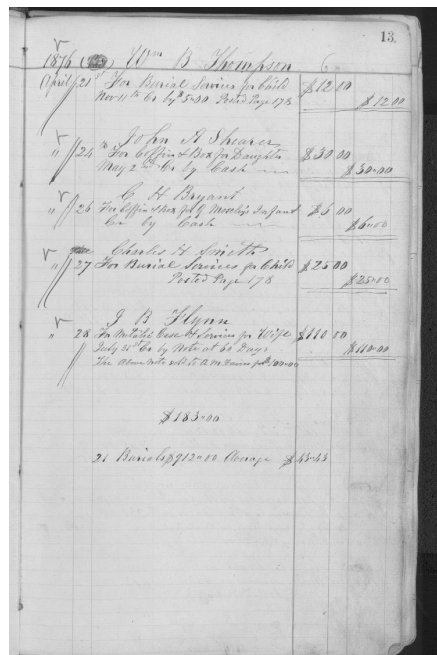 13.
1876 Wm B Thompson 6
April 21st For Burial Services for Child $12 00
Nov 11th Cr by 5.00 Posted Page 178 $12.00
John A Shearer
" 24th For Coffin & Box for Daughter $30 00
May 2nd Cr by Cash $30.00
C H Bryant
" 26 For Coffin & Box for G Infant $6 00
Cr by Cash $6.00
Charles H Smith
" 27 For Burial Services for Child $25 00
Posted Page 178 $25.00
J B Flynn
" 28 For Metalic Case & Services for Wife $110 00
July 21st Cr by Note at 60 Days $110.00
The Above Note sold to R M for $100.00
$183.00
21 Burials $912.00 Average $43.43